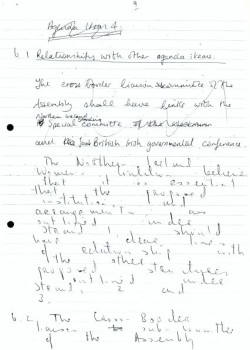 9
Agenda Item 4
6.1 Relationships with other agenda items.
The cross border liaison subcommittee of the
Assembly should have links with the
Northern Ireland
special committee
and the Joint British Irish governmental conference.
The Northern Ireland
Women's Coalition believe
that it is essential
that the proposed
institutional and
arrangements as
outlined under
strand 1, should
have clear lines
of relationship with
the other
proposed structures
outlined under
strands 2 and
3.
6.2 The Cross-Border
liaison sub-committee
of the Assembly